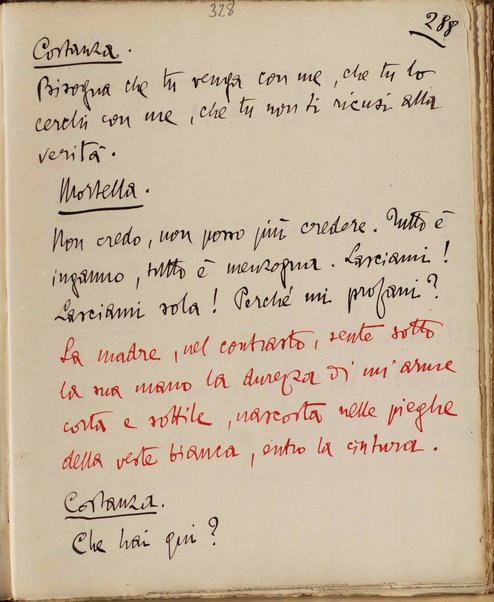 328
288
Costanza.
Bisogna che tu venga con me, che tu lo
cerchi con me, che tu non ti ricusi alla
verità.
Mortella.
Non credo, non posso più credere. Tutto è
inganno, tutto è menzogna. Lasciami!
Lasciami sola! Perché mi profani?
La madre, nel contrasto, sente sotto
la sua mano la durezza di un'arme
corta e sottile, nascosta nelle pieghe
della veste bianca, entro la cintura.
Costanza.
Che hai qui?